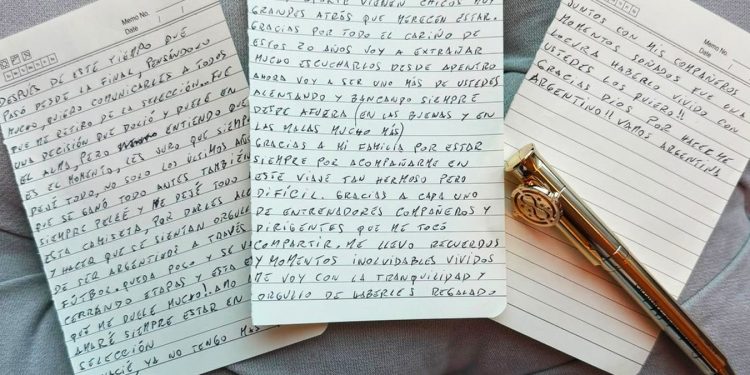 Memo No.
DESPUÉS DE ESTE TIEMPO QUE
PASÓ DESDE LA FINAL, PENSÁNDOLO
MUCHO, QUIERO COMUNICARLES A TODOS
QUE ME RETIRO DE LA SELECCIÓN... FUE
UNA DECISIÓN QUE DOLIÓ Y DUELE EN
EL ALMA, PERO ENTIENDO QUE
ES EL MOMENTO, LES JURO QUE SIEMP
DEJÉ TODO, NO SOLO LOS ÚLTIMOS AÑOS
QUE SE GANÓ TODO ANTES TAMBIÉN
SIEMPRE PELEÉ Y ME DEJÉ TODO
ESTA CAMISETA, POR DARLES ALE
Y HACER QUE SE SIENTAN ORGULL
DE SER ARGENTINO A TRAVÉS
FÚTBOL. QUEDA POCO Y SE VA
CERRANDO ETAPAS Y ESTA E
QUE ME DUELE MUCHO!! AMO
AMARÉ SIEMPRE ESTAR EN
SELECCIÓN
VACIÉ, YA NO TENGO MÁS
VIENEN CHICOS MUY
GRANDES ATRÁS QUE MERECEN ESTAR.
GRACIAS POR TODO EL CARIÑO DE
ESTOS 20 AÑOS VOY A EXTRAÑAR
MUCHO ESCUCHARLOS DESDE ADENTRO
AHORA VOY A SER UNO MÁS DE USTEDES
ALENTANDO Y BANCANDO SIEMPRE
DESDE AFUERA (EN LAS BUENAS Y EN
LAS MALAS MUCHO MÁS)
GRACIAS A MI FAMILIA POR ESTAR
SIEMPRE POR ACOMPAÑARME EN
ESTE VIAJE TAN HERMOSO PERO
DIFÍCIL. GRACIAS A CADA UNO
DE ENTRENADORES COMPAÑEROS Y
DIRIGENTES QUE ME TOCÓ
COMPARTIR. ME LLEVO RECUERDOS
Y MOMENTOS INOLVIDABLES VIVIDOS
ME VOY CON LA TRANQUILIDAD Y
ORGULLO DE HABERLES REGALADO
Memo No.
JUNTOS CON MIS COMPAÑEROS
MOMENTOS SOÑADOS FUE UNA
LOCURA HABERLO VIVIDO CON
USTEDES LOS QUIERO!!
GRACIAS DIOS POR HACERME
ARGENTINO!! VAMOS ARGENTINA